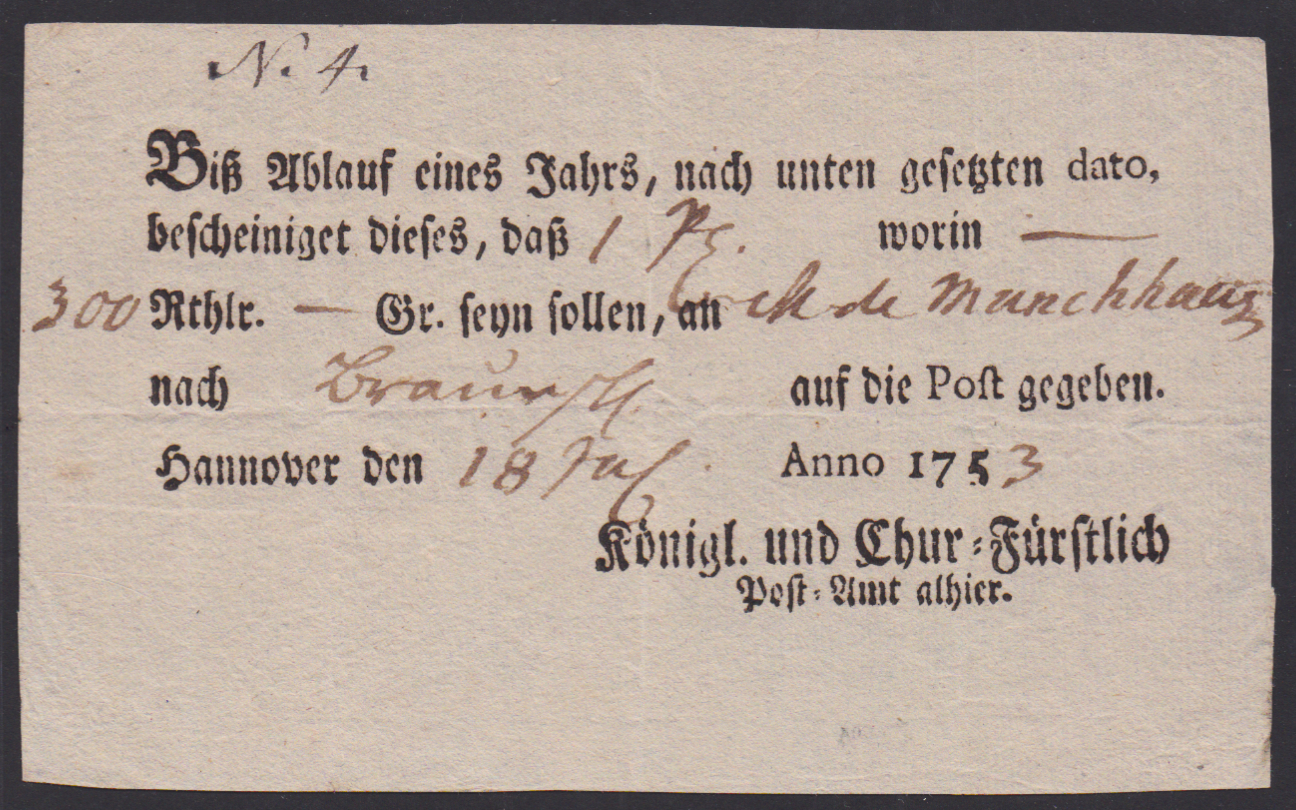 N. 4.
Biß Ablauf eines Jahrs, nach unten gesetzten dato,
bescheiniget dieses, daß 1 Pq. worin —
300 Rthlr. — Gr. seyn sollen, an de Munchhaus
nach Braunsch. auf die Post gegeben.
Hannover den 18 Anno 1753
Königl. und Chur=Fürstlich
Post=Amt alhier.